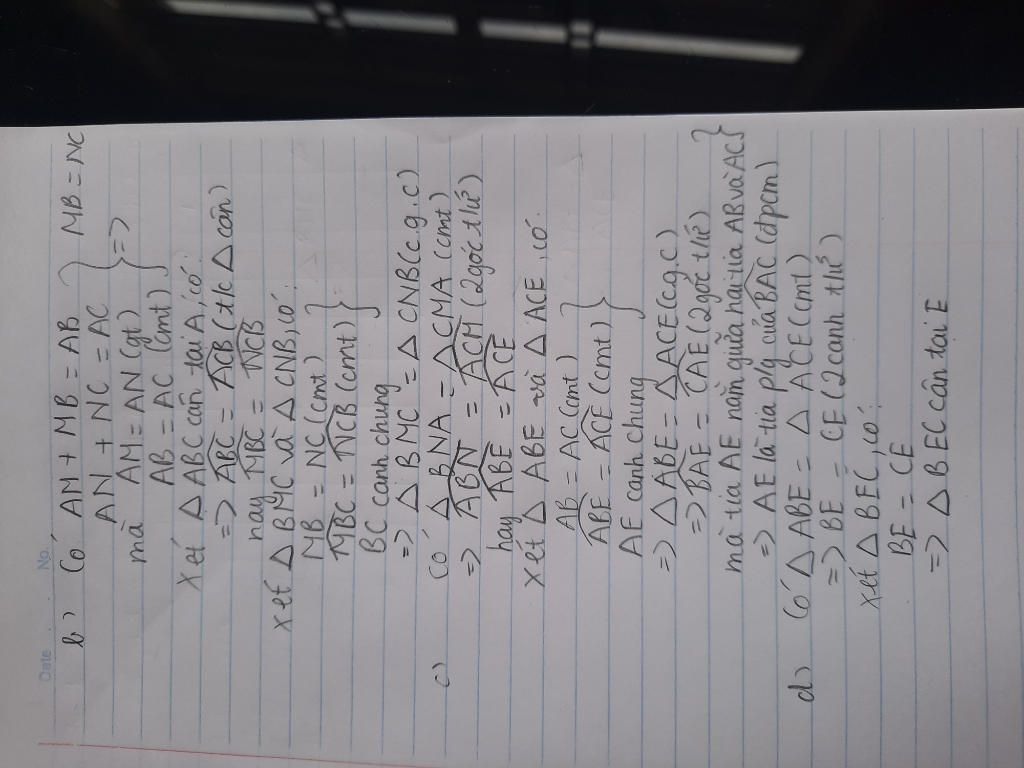 Date No.
b) Có AM + MB = AB } MB = NC
AN + NC = AC } =>
mà AM = AN (gt)
AB = AC (cmt)
xét △ABC cân tại A, có:
=> ABC = ACB (t/c △ cân)
hay MBC = NCB
xét △BMC và △CNB, có:
MB = NC (cmt)
MBC = NCB (cmt) }
BC cạnh chung
=> △BMC = △CNB (c.g.c)
c) Có △BNA = △CMA (cmt)
=> ABN = ACM (2 góc t/ứ)
hay ABE = ACE
xét △ABE và △ACE, có:
AB = AC (cmt)
ABE = ACE (cmt) }
AE cạnh chung
=> △ABE = △ACE (c.g.c)
=> BAE = CAE (2 góc t/ứ) }
mà tia AE nằm giữa hai tia AB và AC
=> AE là tia p/g của BAC (đpcm)
d) Có △ABE = △ACE (cmt)
=> BE = CE (2 cạnh t/ứ)
xét △BEC, có:
BE = CE
=> △BEC cân tại E